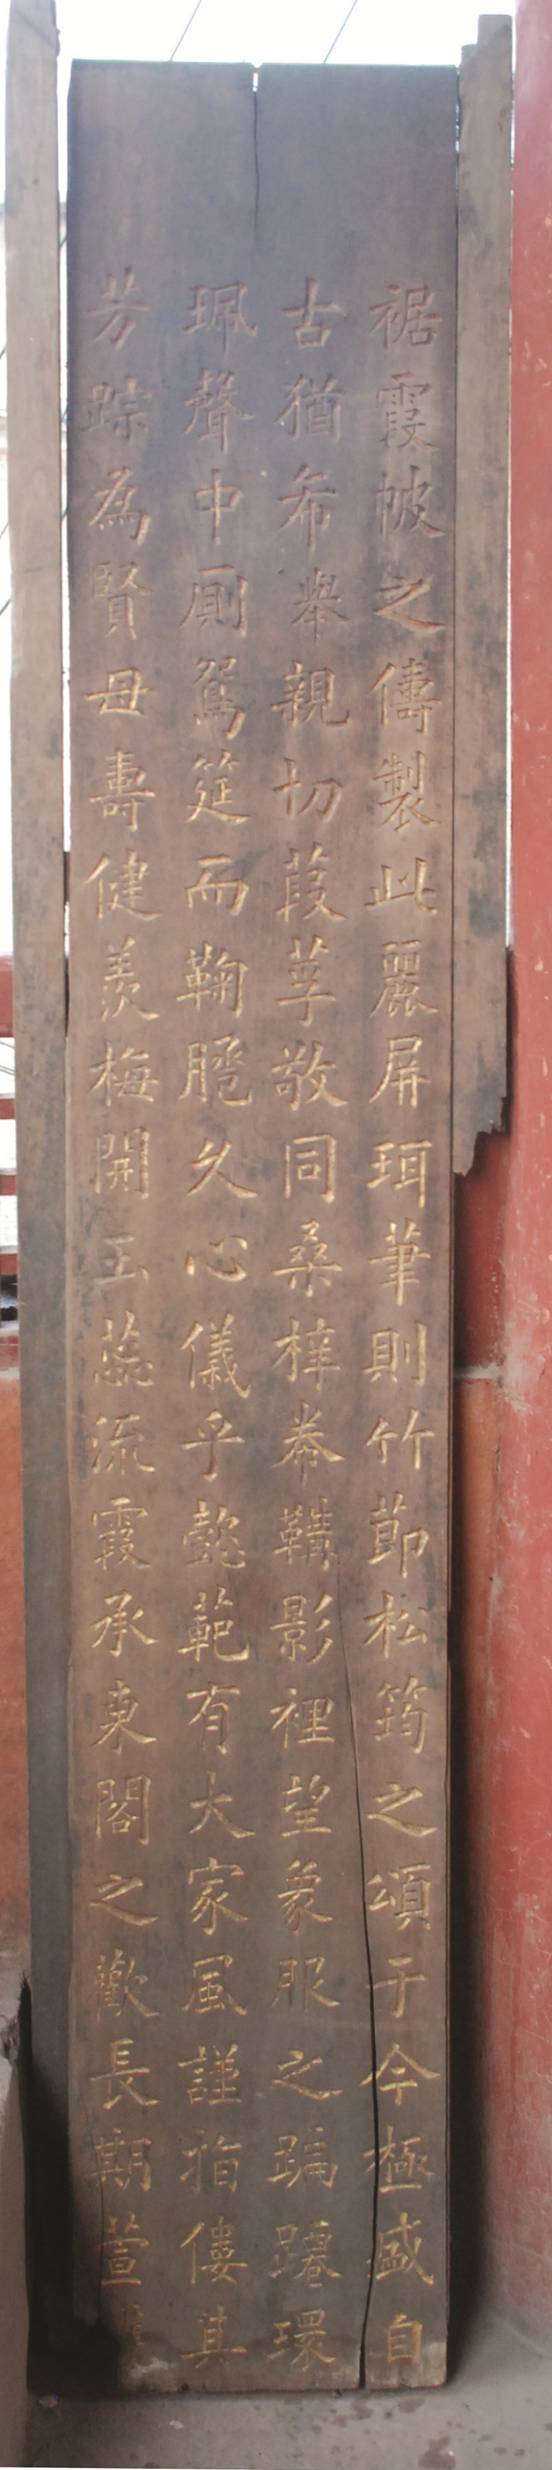 裾霞帔之傳製此麗屏珥筆則竹節松筠之頌于今極盛自
古猶希舉親切葭莩敬同桑梓帣韝影裡望象服之蹁躚環
珮聲中廁鴛筵而鞠䠆久心儀乎懿範有大家風謹指僂其
芳踪為賢母壽健羨梅開玉蕊流霞承東閣之歡長期萱